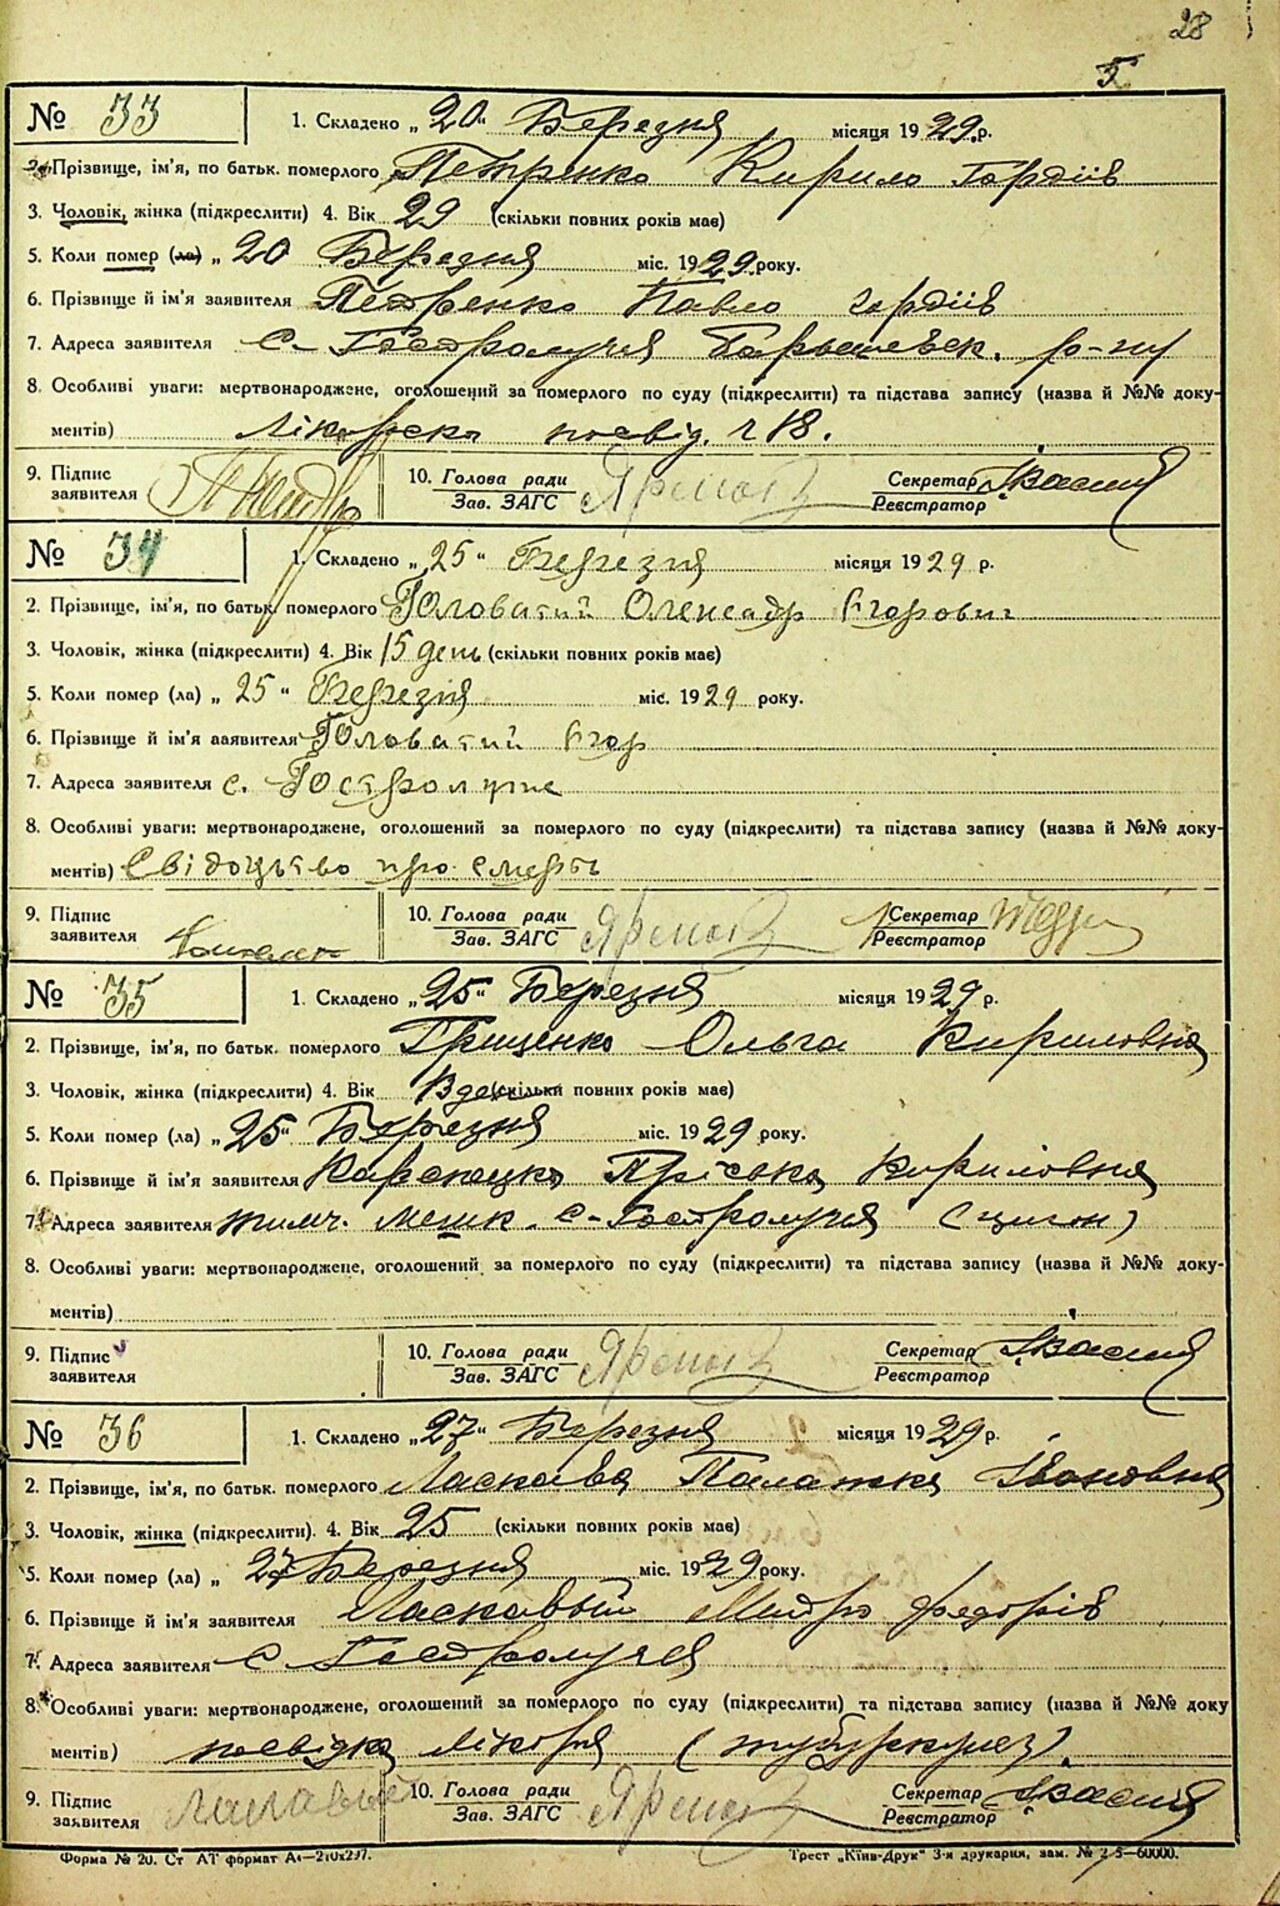 28
5
№ 33 1. Складено „20" Березня місяця 1929 р.
2. Прізвище, ім'я, по батьк. померлого Петренко Кирило Гордіїв
3. Чоловік, жінка (підкреслити) 4. Вік 29 (скільки повних років має)
5. Коли помер (ла) „ 20 Березня міс. 1929 року.
6. Прізвище й ім'я заявителя Петренко Павло Гордіїв
7. Адреса заявителя с. Гостролуччя Баришевськ. р-ну
8. Особливі уваги: мертвонароджене, оголошений за померлого по суду (підкреслити) та підстава запису (назва й №№ доку-
ментів) Лікарска посвід. ч 18.
9. Підпис заявителя 10. Голова ради Секретар
Зав. ЗАГС Реєстратор
№ 34 1. Складено „25" Березня місяця 1929 р.
2. Прізвище, ім'я, по батьк. померлого Головатий Олександр Єгорович
3. Чоловік, жінка (підкреслити) 4. Вік 15 день (скільки повних років має)
5. Коли помер (ла) „ 25" Березня міс. 1929 року.
6. Прізвище й ім'я заявителя Головатий Єгор
7. Адреса заявителя с. Гостролучє
8. Особливі уваги: мертвонароджене, оголошений за померлого по суду (підкреслити) та підстава запису (назва й №№ доку-
ментів) Свідоцьтво про смерть
9. Підпис заявителя 10. Голова ради Секретар
Зав. ЗАГС Реєстратор
№ 35 1. Складено „25" Березня місяця 1929 р.
2. Прізвище, ім'я, по батьк. померлого Грищенко Ольга Кириловна
3. Чоловік, жінка (підкреслити) 4. Вік (скільки повних років має)
5. Коли помер (ла) „ 25" Березня міс. 1929 року.
6. Прізвище й ім'я заявителя Пріська Кириловна
7. Адреса заявителя тимч. мешк. с. Гостролуччя (циган)
8. Особливі уваги: мертвонароджене, оголошений за померлого по суду (підкреслити) та підстава запису (назва й №№ доку-
ментів)
9. Підпис заявителя 10. Голова ради Секретар
Зав. ЗАГС Реєстратор
№ 36 1. Складено „27" Березня місяця 1929 р.
2. Прізвище, ім'я, по батьк. померлого Ласкава Палажка Івановна
3. Чоловік, жінка (підкреслити). 4. Вік 25 (скільки повних років має)
5. Коли помер (ла) „ 27 Березня міс. 1929 року.
6. Прізвище й ім'я заявителя Ласкавый Федорів
7. Адреса заявителя с Гостролуччя
8. Особливі уваги: мертвонароджене, оголошений за померлого по суду (підкреслити) та підстава запису (назва й №№ доку
ментів) посвідка лікаря (тубуркульоз).
9. Підпис заявителя 10. Голова ради Секретар
Зав. ЗАГС Реєстратор
Форма № 20. Ст АТ формат А4—210х297. Трест „Київ-Друк" 3-я друкарня, зам. №